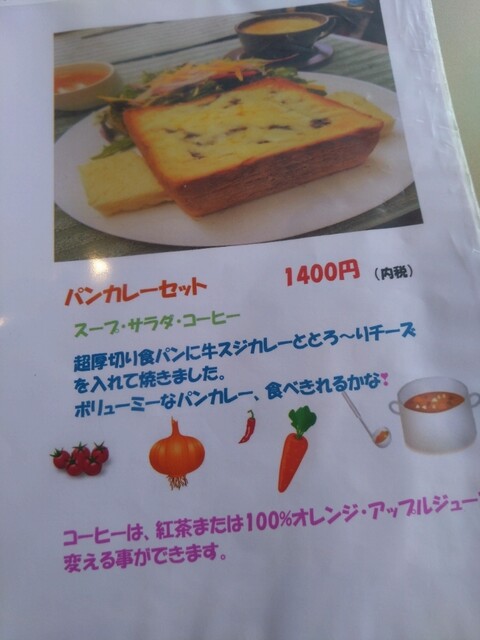 パンカレーセット 1400円 (内税)
スープ・サラダ・コーヒー
超厚切り食パンに牛スジカレーととろ～りチーズ
を入れて焼きました。
ボリューミーなパンカレー、食べきれるかな❣
コーヒーは、紅茶または100%オレンジ・アップルジュー
変える事ができます。